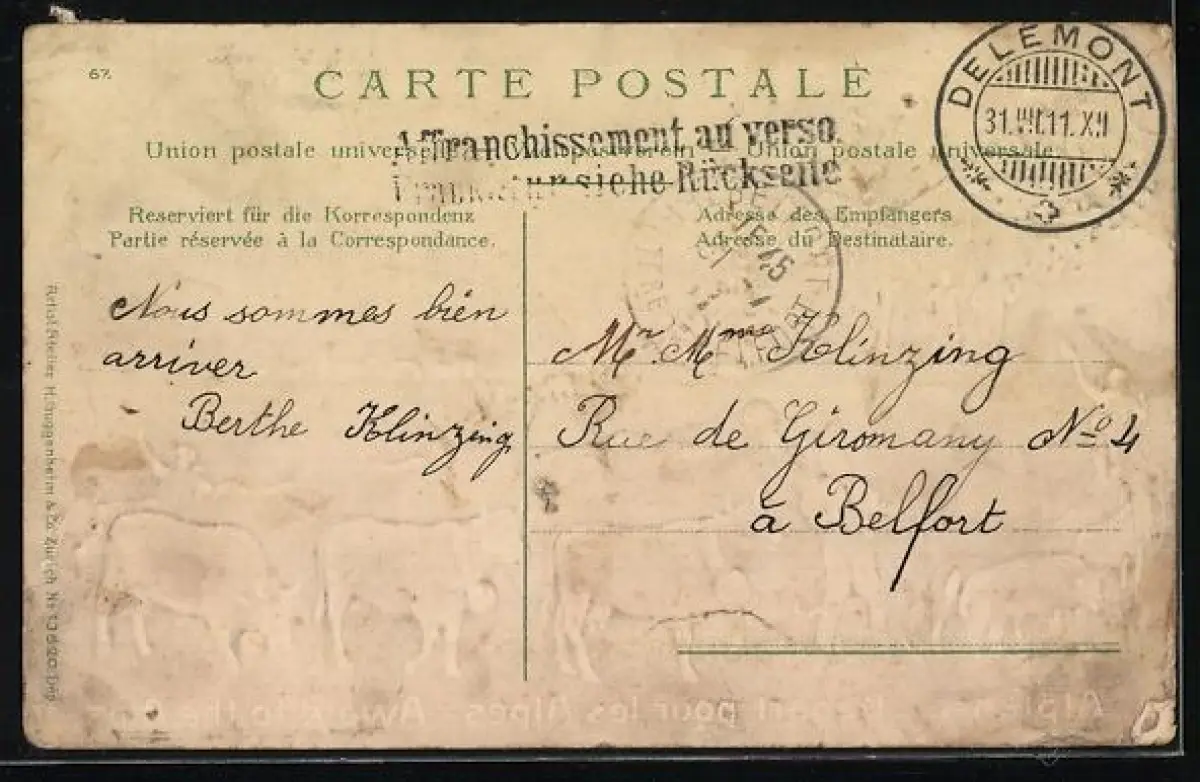 67.
CARTE POSTALE
DELEMONT
31.VIII.11.XII
Affranchissement au verso
Frankatur siehe Rückseite
Union postale universelle. Weltpostverein. Union postale universale.
Reserviert für die Korrespondenz
Partie réservée à la Correspondance.
Adresse des Empfängers
Adresse du Destinataire.
Nous sommes bien
arriver
Berthe Klinzing
Mr. Mme Klinzing
Rue de Giromany No 4
à Belfort
BELFORT
15 45
Relief-Atelier H. Guggenheim & Co. Zürich No.
Départ pour les Alpes